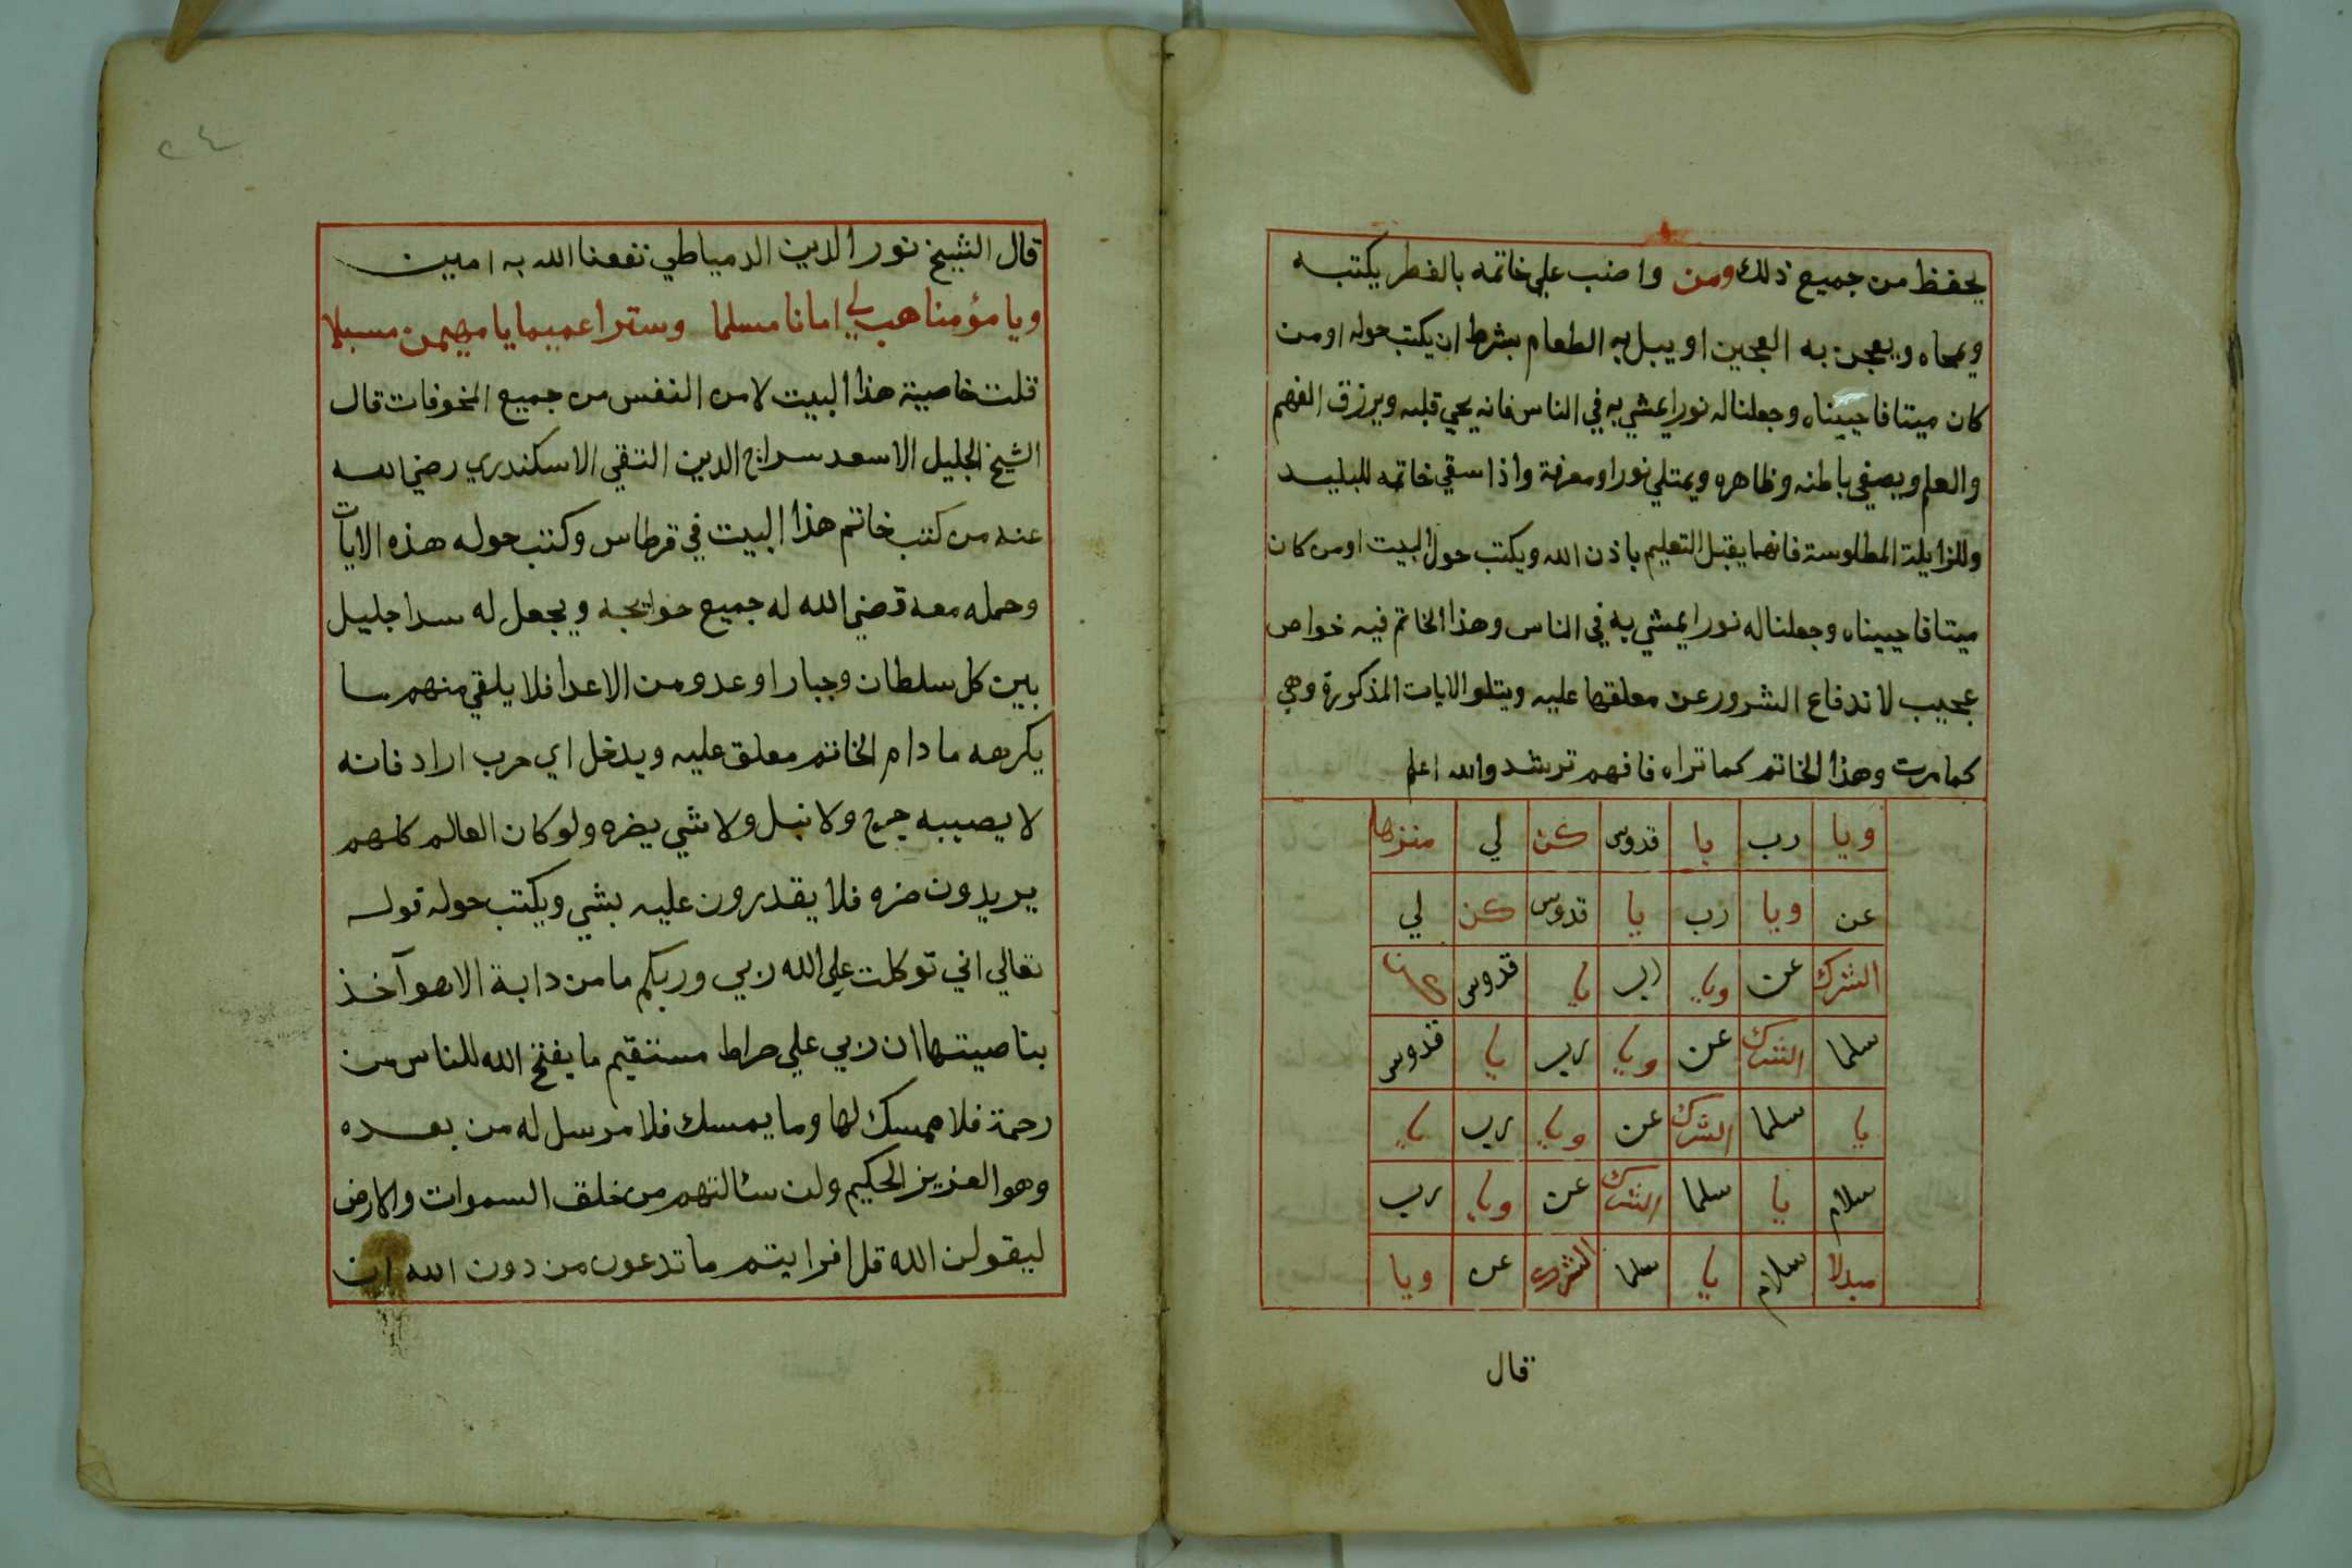 يحفظ من جميع ذلك ومن واضب علي خاتمه بالفطر يكتبه
ويمحاه ويعجن به العجين او يبل به الطعام بشرط ان يكتب حوله اومن
كان ميتا فاحييناه وجعلنا له نورا يمشي به في الناس فانه يحي قلبه ويرزق الفهم
والعلم ويصفي باطنه وظاهره ويمتلي نورا ومعرفة واذا سقي خاتمه للبليد
وللزايلة المطلوسة فانهما يقبل التعليم باذن الله ويكتب حول البيت اومن كان
ميتا فاحييناه وجعلنا له نورا يمشي به في الناس وهذا الخاتم فيه خواص
عجيب لاندفاع الشرور عن معلقها عليه ويتلو الايات المذكورة وهي
كما مرت وهذا الخاتم كما تراه فافهم ترشد والله اعلم
ويا رب يا قدوس كن لي منزها
عن ويا رب يا قدوس كن لي
الشرك عن ويا رب يا قدوس كن
سلما الشرك عن ويا رب يا قدوس
يا سلما الشرك عن ويا رب يا
سلام يا سلما الشرك عن ويا رب
مبدلا سلام يا سلما الشرك عن ويا
قال
٢٤
قال الشيخ نور الدين الدمياطي نفعنا الله به امين
ويا مؤمنا هب لي امانا مسلما وسترا عميما يا مهيمن مسبلا
قلت خاصية هذا البيت لامن النفس من جميع المخوفات قال
الشيخ الجليل الاسعد سراج الدين التقي الاسكندري رضي الله
عنه من كتب خاتم هذا البيت في قرطاس وكتب حوله هذه الايات
وحمله معه قضي الله له جميع حوايجه ويجعل له سدا جليل
بين كل سلطان وجبار او عدو من الاعدا فلا يلقي منهم ما
يكرهه ما دام الخاتم معلق عليه ويدخل اي حرب اراد فانه
لا يصيبه جرح ولا نبل ولا شي يضره ولو كان العالم كلهم
يريدون ضره فلا يقدرون عليه بشي ويكتب حوله قوله
تعالي اني توكلت علي الله ربي وربكم ما من دابة الا هو آخذ
بناصيتها ان ربي علي صراط مستقيم ما يفتح الله للناس من
رحمة فلا ممسك لها وما يمسك فلا مرسل له من بعده
وهو العزيز الحكيم ولن سئالتهم من خلق السموات والارض
ليقولن الله قل افرايتم ما تدعون من دون الله ان